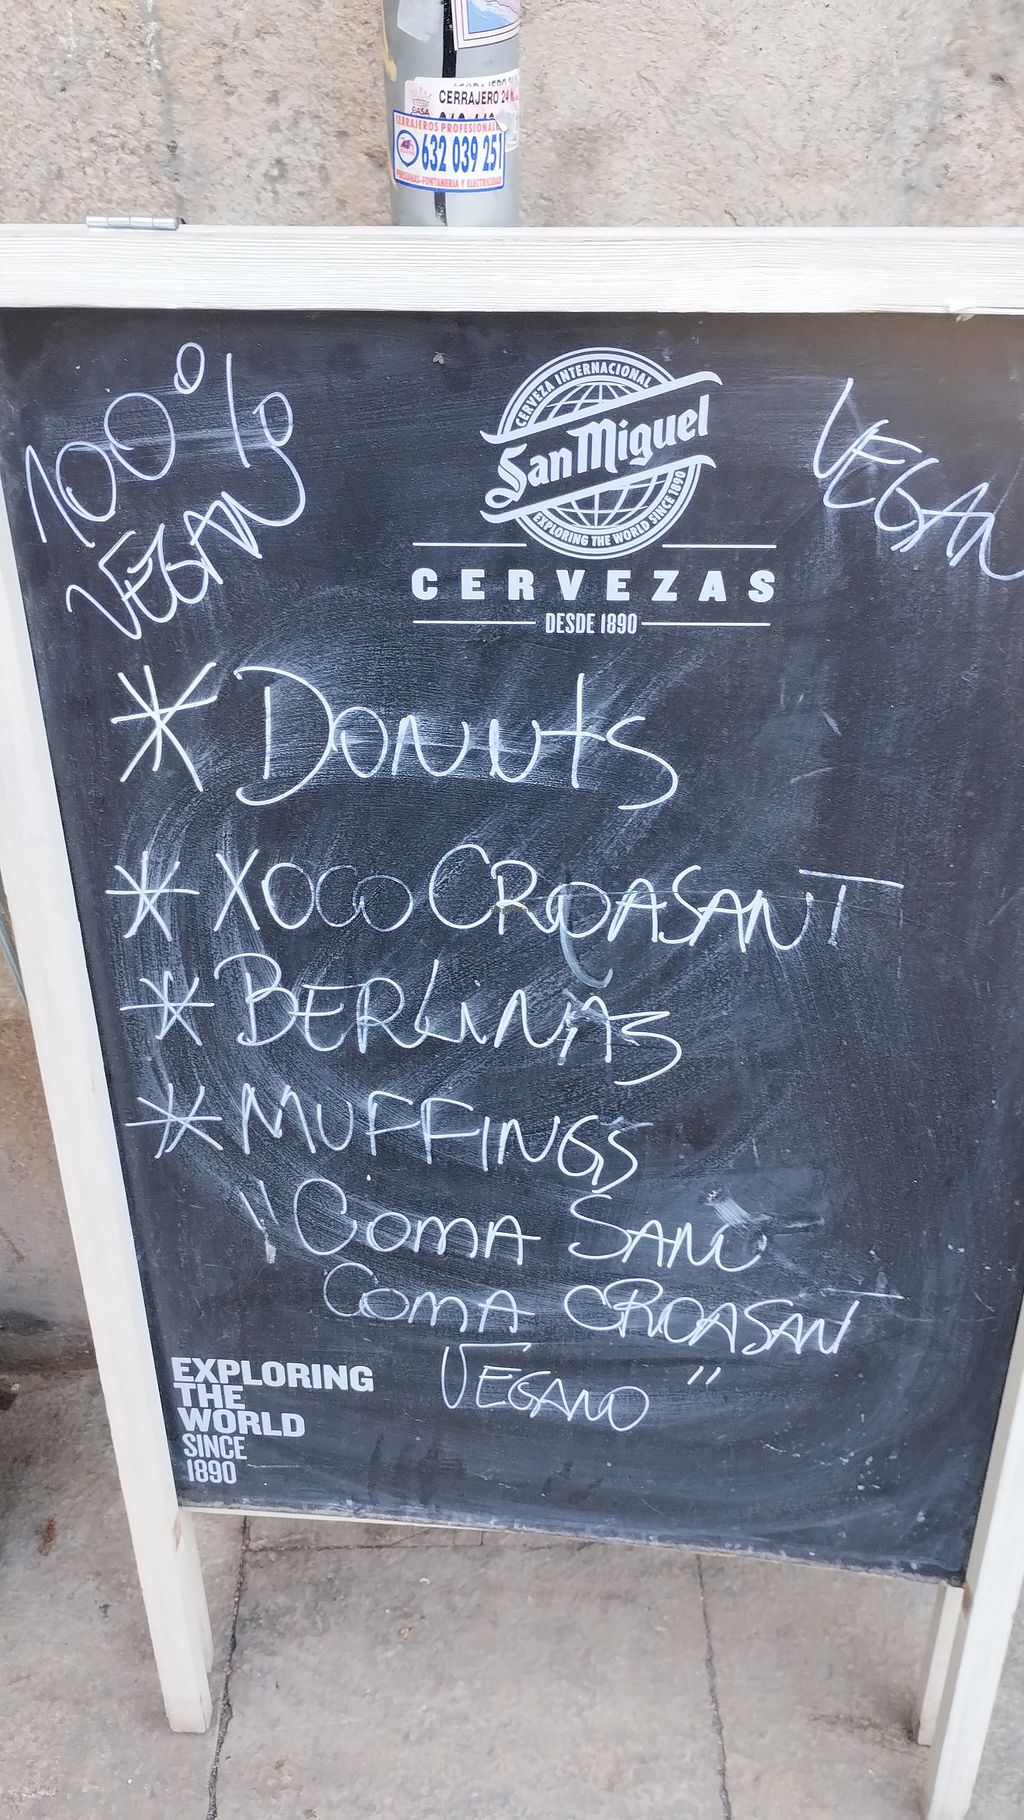 CERRAJERO 24 h.
CASA
CERRAJEROS PROFESIONALES
632 039 251
PERSIANAS-FONTANERIA Y ELECTRICIDAD
100%
VEGAN
CERVEZA INTERNACIONAL
San Miguel
EXPLORING THE WORLD SINCE 1890
CERVEZAS
DESDE 1890
VEGAN
* DONUTS
* XOCO CROASANT
* BERLINAS
* MUFFINGS
"COMA SANO
COMA CROASANT
VEGANO"
EXPLORING
THE
WORLD
SINCE
1890